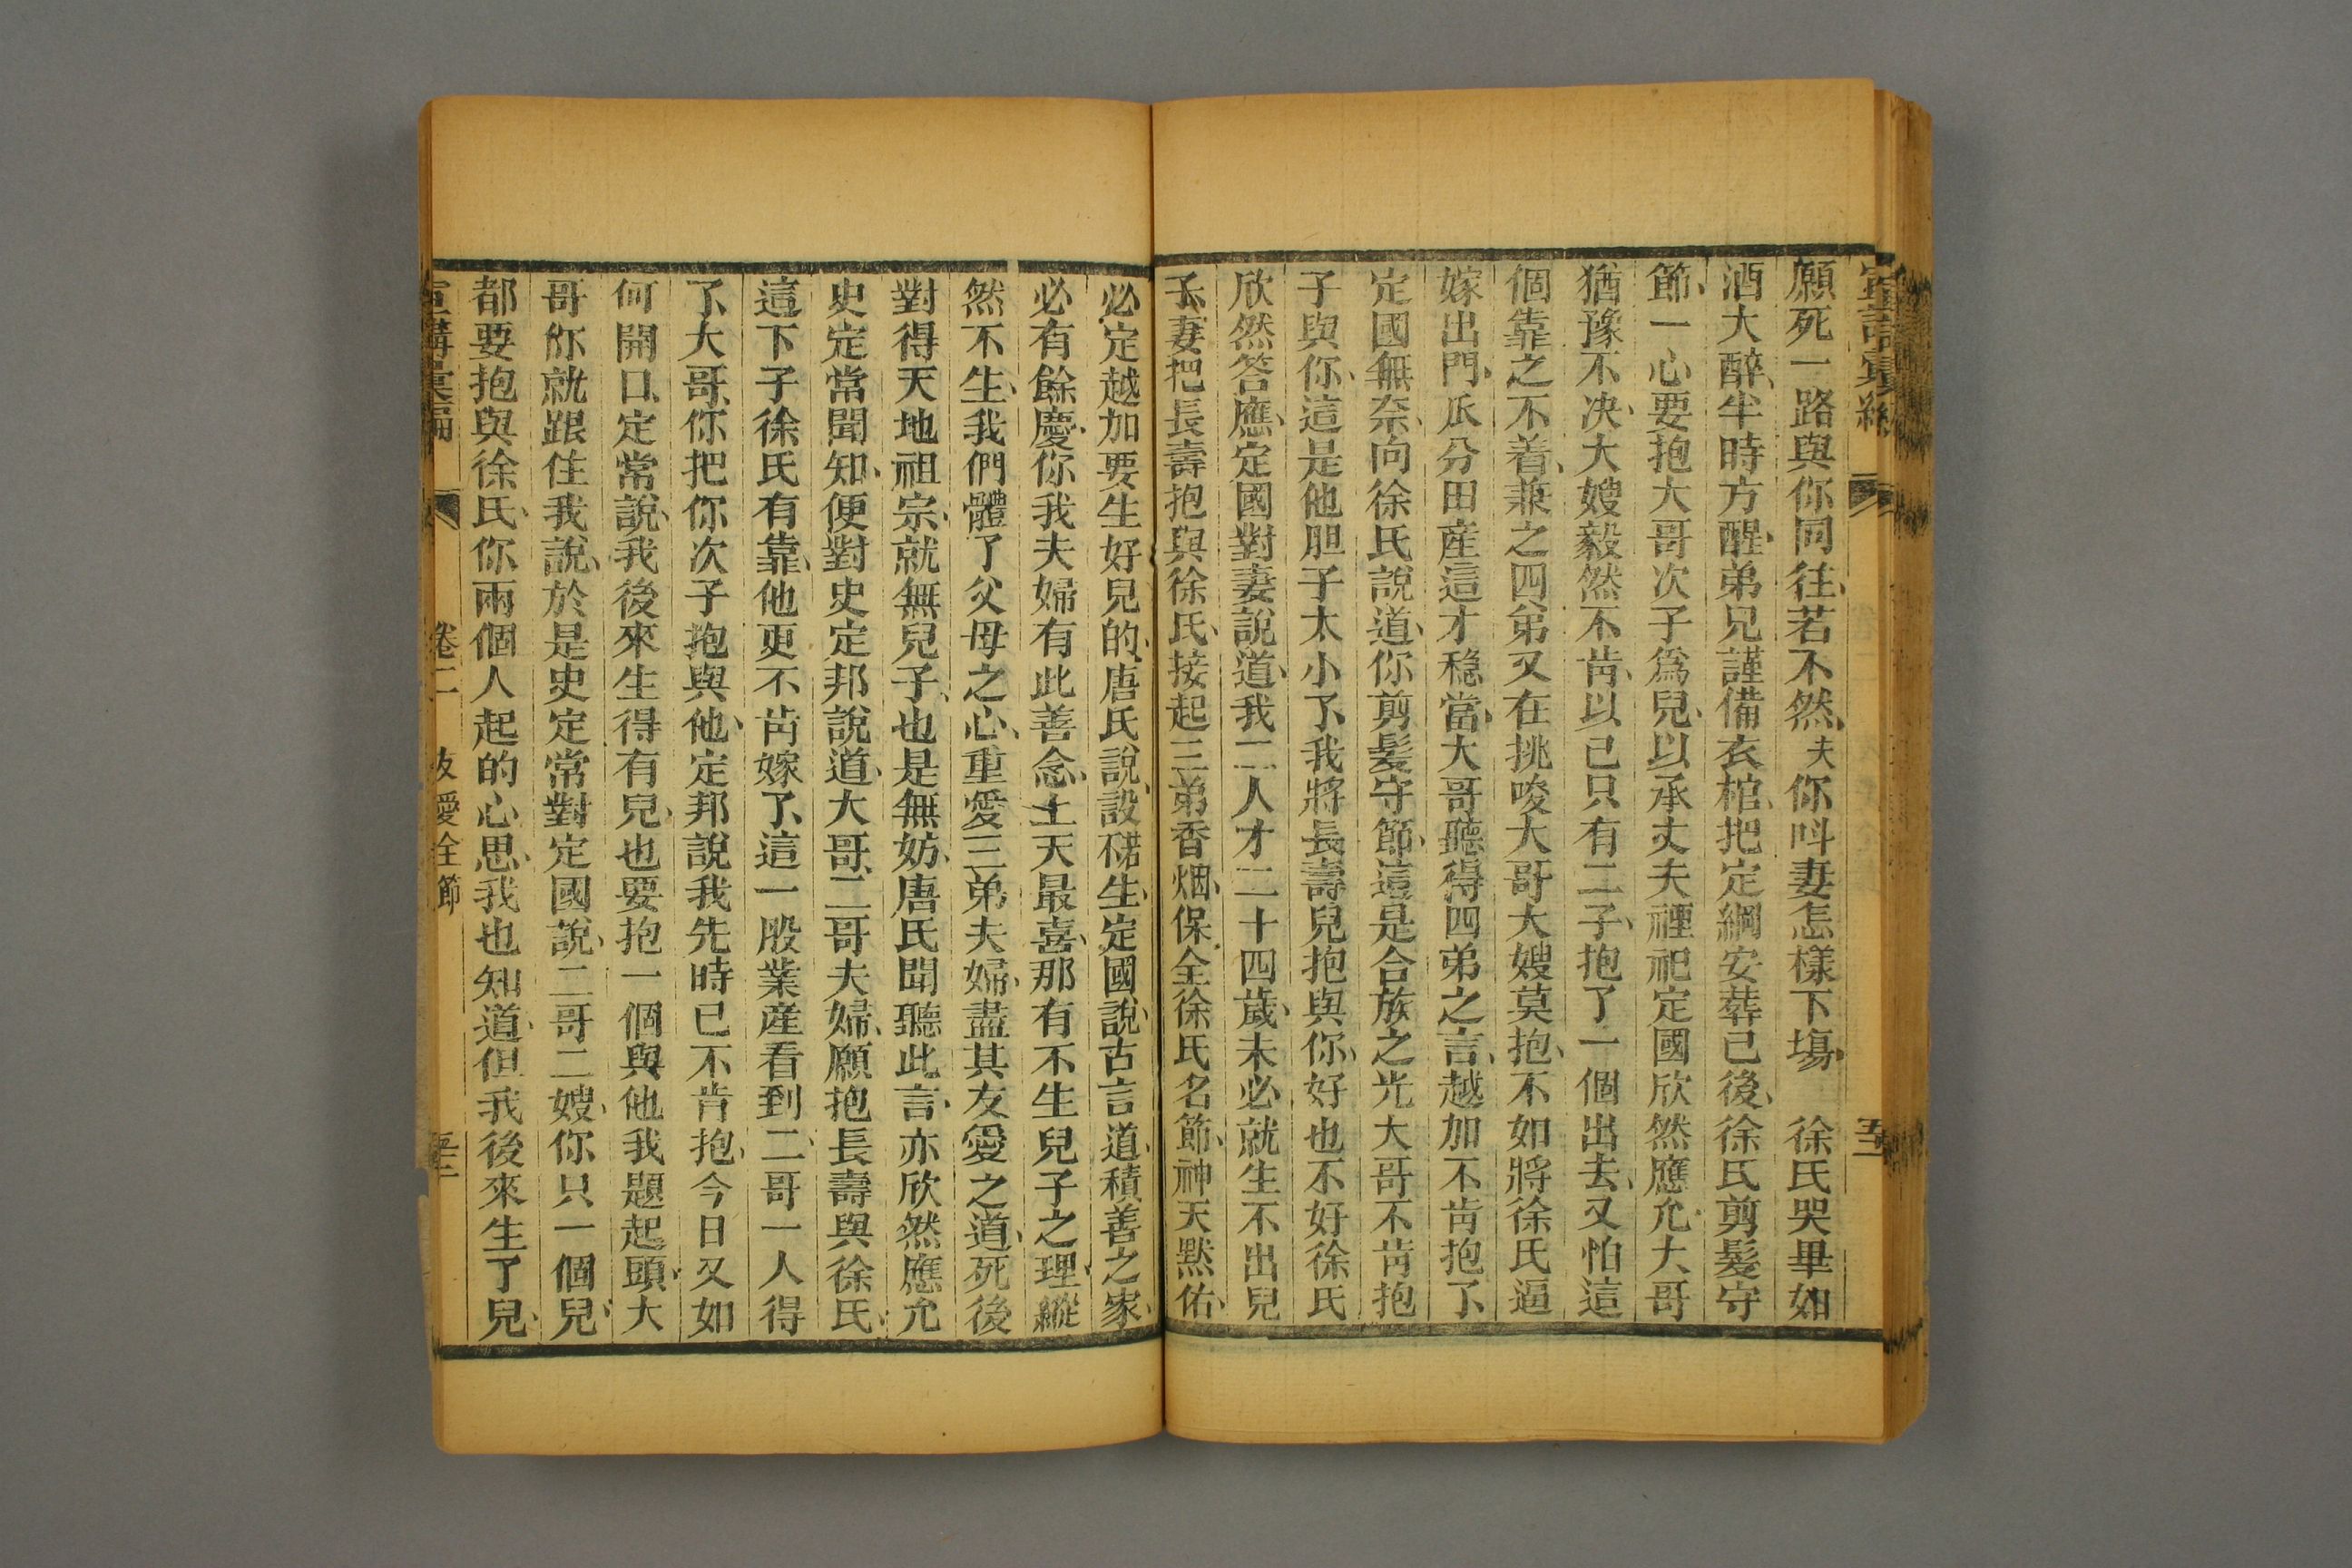 願死一路與你同往、若不然、夫你呌妻怎樣下塲　徐氏哭畢如
酒大醉、半時方醒、弟兄謹備衣棺、把定綱安葬已後、徐氏剪髮守
節、一心要抱大哥次子爲兒、以承丈夫禋祀定國欣然應允、大哥
猶豫不决、大嫂毅然不肯、以已只有二子、抱了一個出去、又怕這
個靠之不着、兼之四弟又在挑唆大哥大嫂莫抱、不如將徐氏逼
嫁出門、瓜分田產這才稳當、大哥聽得四弟之言、越加不肯抱了、
定國無奈、向徐氏說道、你剪髮守節、這是合族之光大哥不肯抱
子與你、這是他胆子太小了、我將長壽兒抱與你、好也不好徐氏
欣然答應、定國對妻說道、我二人才二十四歲、未必就生不出兒
子、妻把長壽抱與徐氏、接起三弟香烟、保全徐氏名節、神天默佑、
必定越加要生好兒的、唐氏說、設𥻘生、定國說、古言道、積善之家、
必有餘慶、你我夫婦有此善念、上天最喜、那有不生兒子之理、縱
然不生、我們體了父母之心、重愛三弟夫婦、盡其友愛之道、死後
對得天地祖宗、就無兒子、也是無妨、唐氏聞聽此言、亦欣然應允
史定常聞知、便對史定邦說道、大哥、二哥夫婦、願抱長壽與徐氏、
這下子徐氏有靠、他更不肯嫁了、這一股業產看到二哥一人得
了、大哥、你把你次子抱與他、定邦說我先時已不肯抱、今日又如
何開口、定常說、我後來生得有兒、也要抱一個與他我題起頭、大
哥你就跟住我說、於是史定常對定國說、二哥二嫂、你只一個兒、
都要抱與徐氏、你兩個人起的心思、我也知道、但我後來生了兒、
宣講彙編　卷二　友愛全節